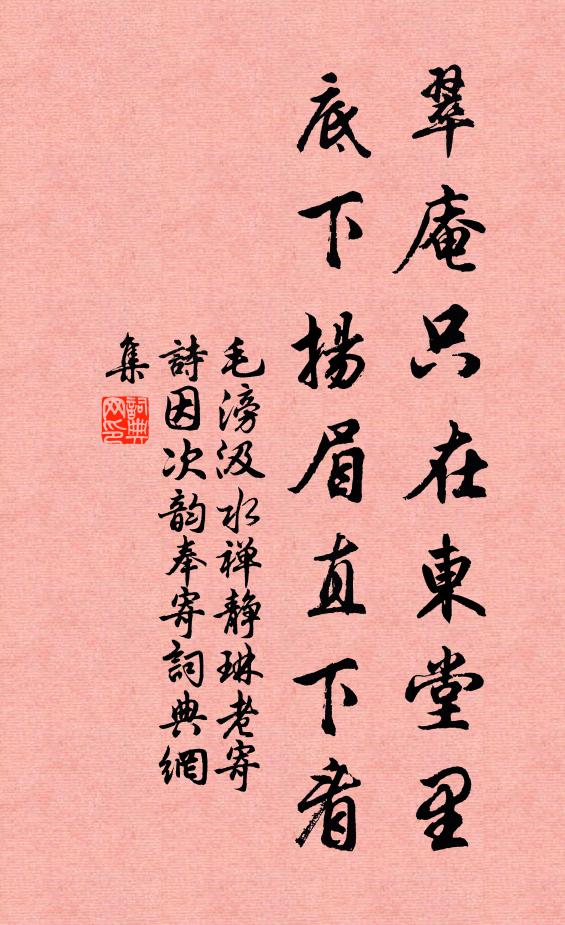 翠庵只在東堂里
底下揚眉直下看
毛滂汲水禅静琳老寄
詩因次韵奉寄詞典網
集
詞典
网印